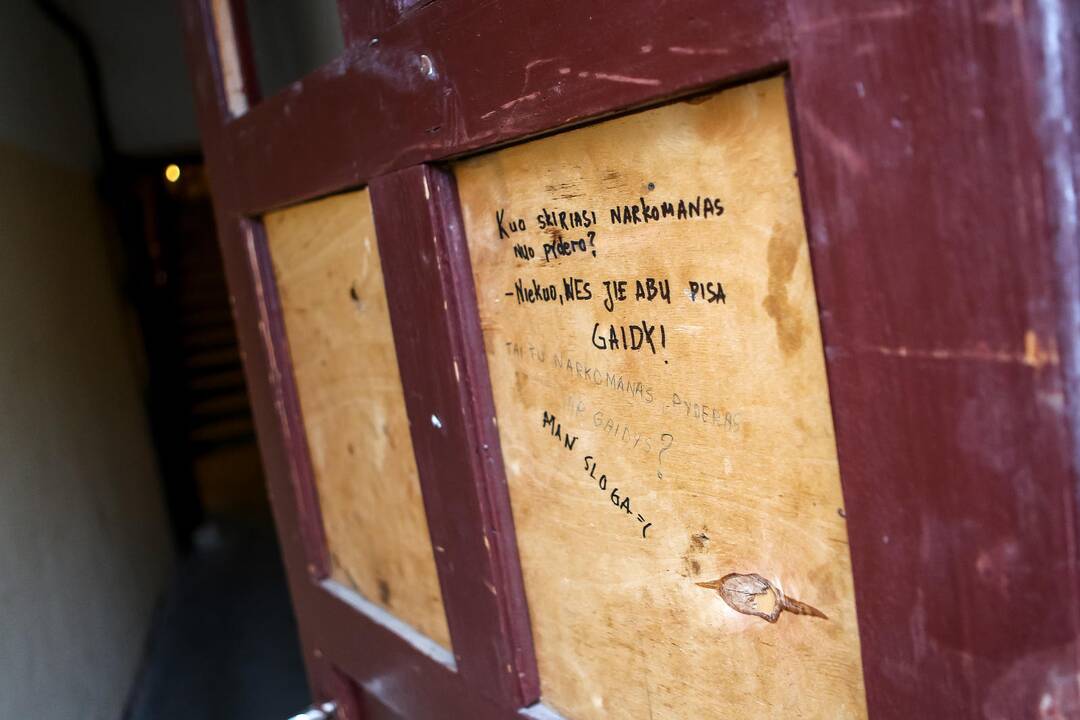 Kuo skiriasi NARKOMANAS
nuo pydero?
- Niekuo, NES JIE ABU PISA
GAIDY!
TAI TU NARKOMANAS PYDERAS
AR GAIDYS?
MAN SLOGA =(